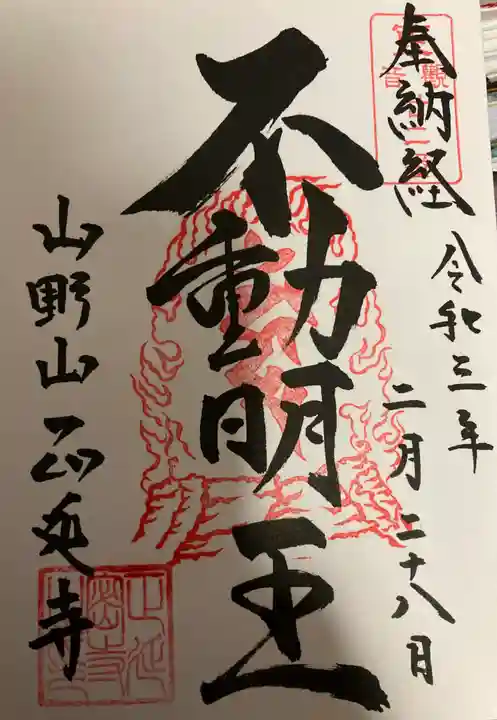 奉納経
令和三年
二月二十八日
不動明王
山野山 正延寺